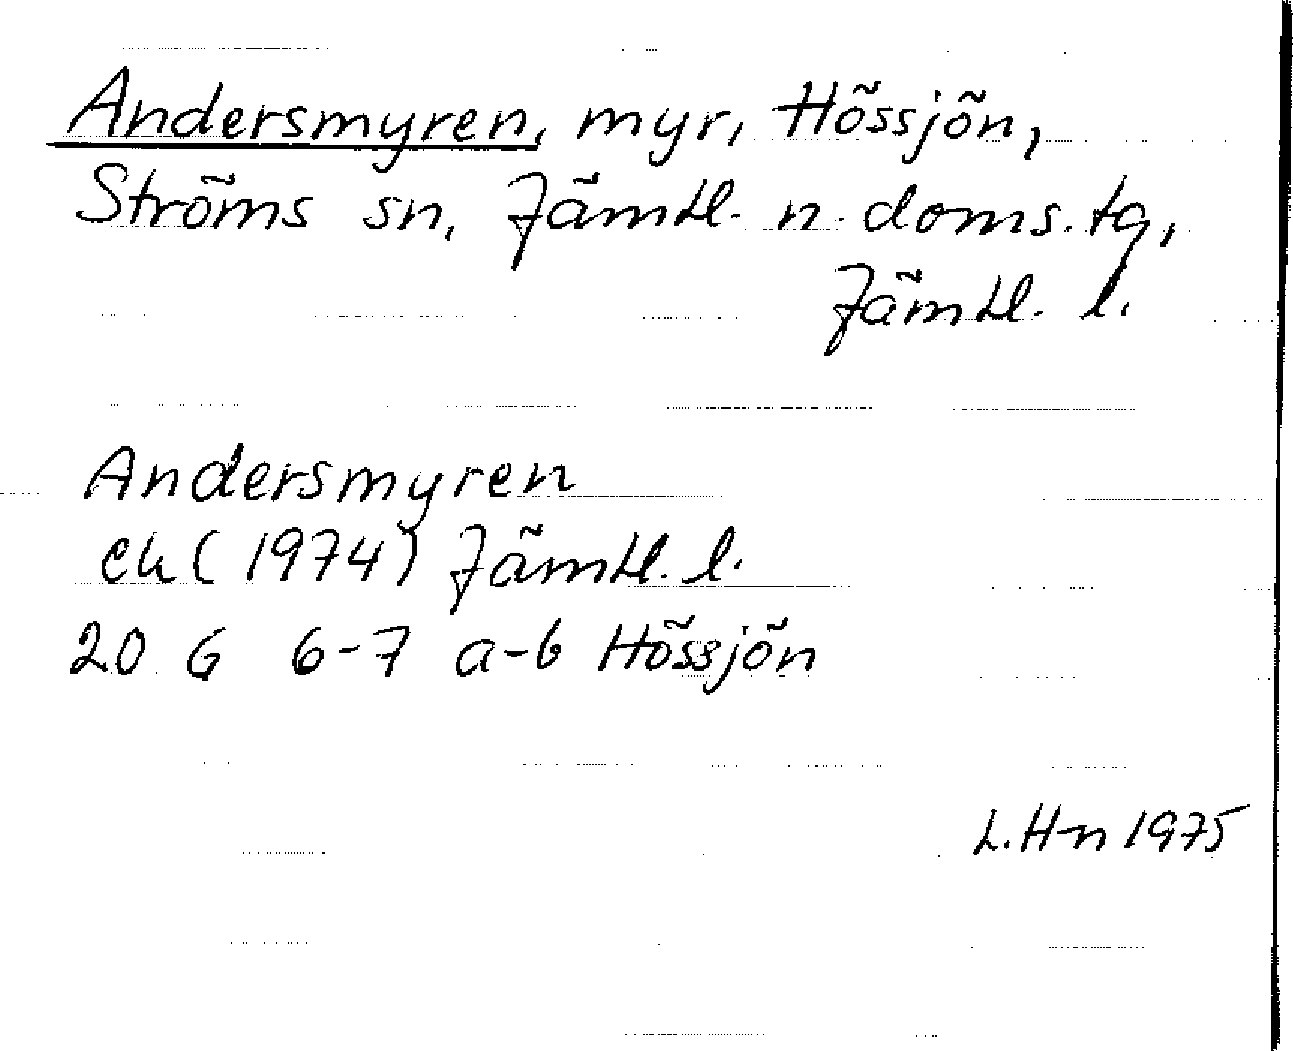 Andersmyren, myr, Hössjön,
Ströms sn, Jämtl. n. doms. tg,
Jämtl. l.
Andersmyren
ek (1974) Jämtl. l.
20 G 6-7 a-b Hössjön
L. H-n 1975